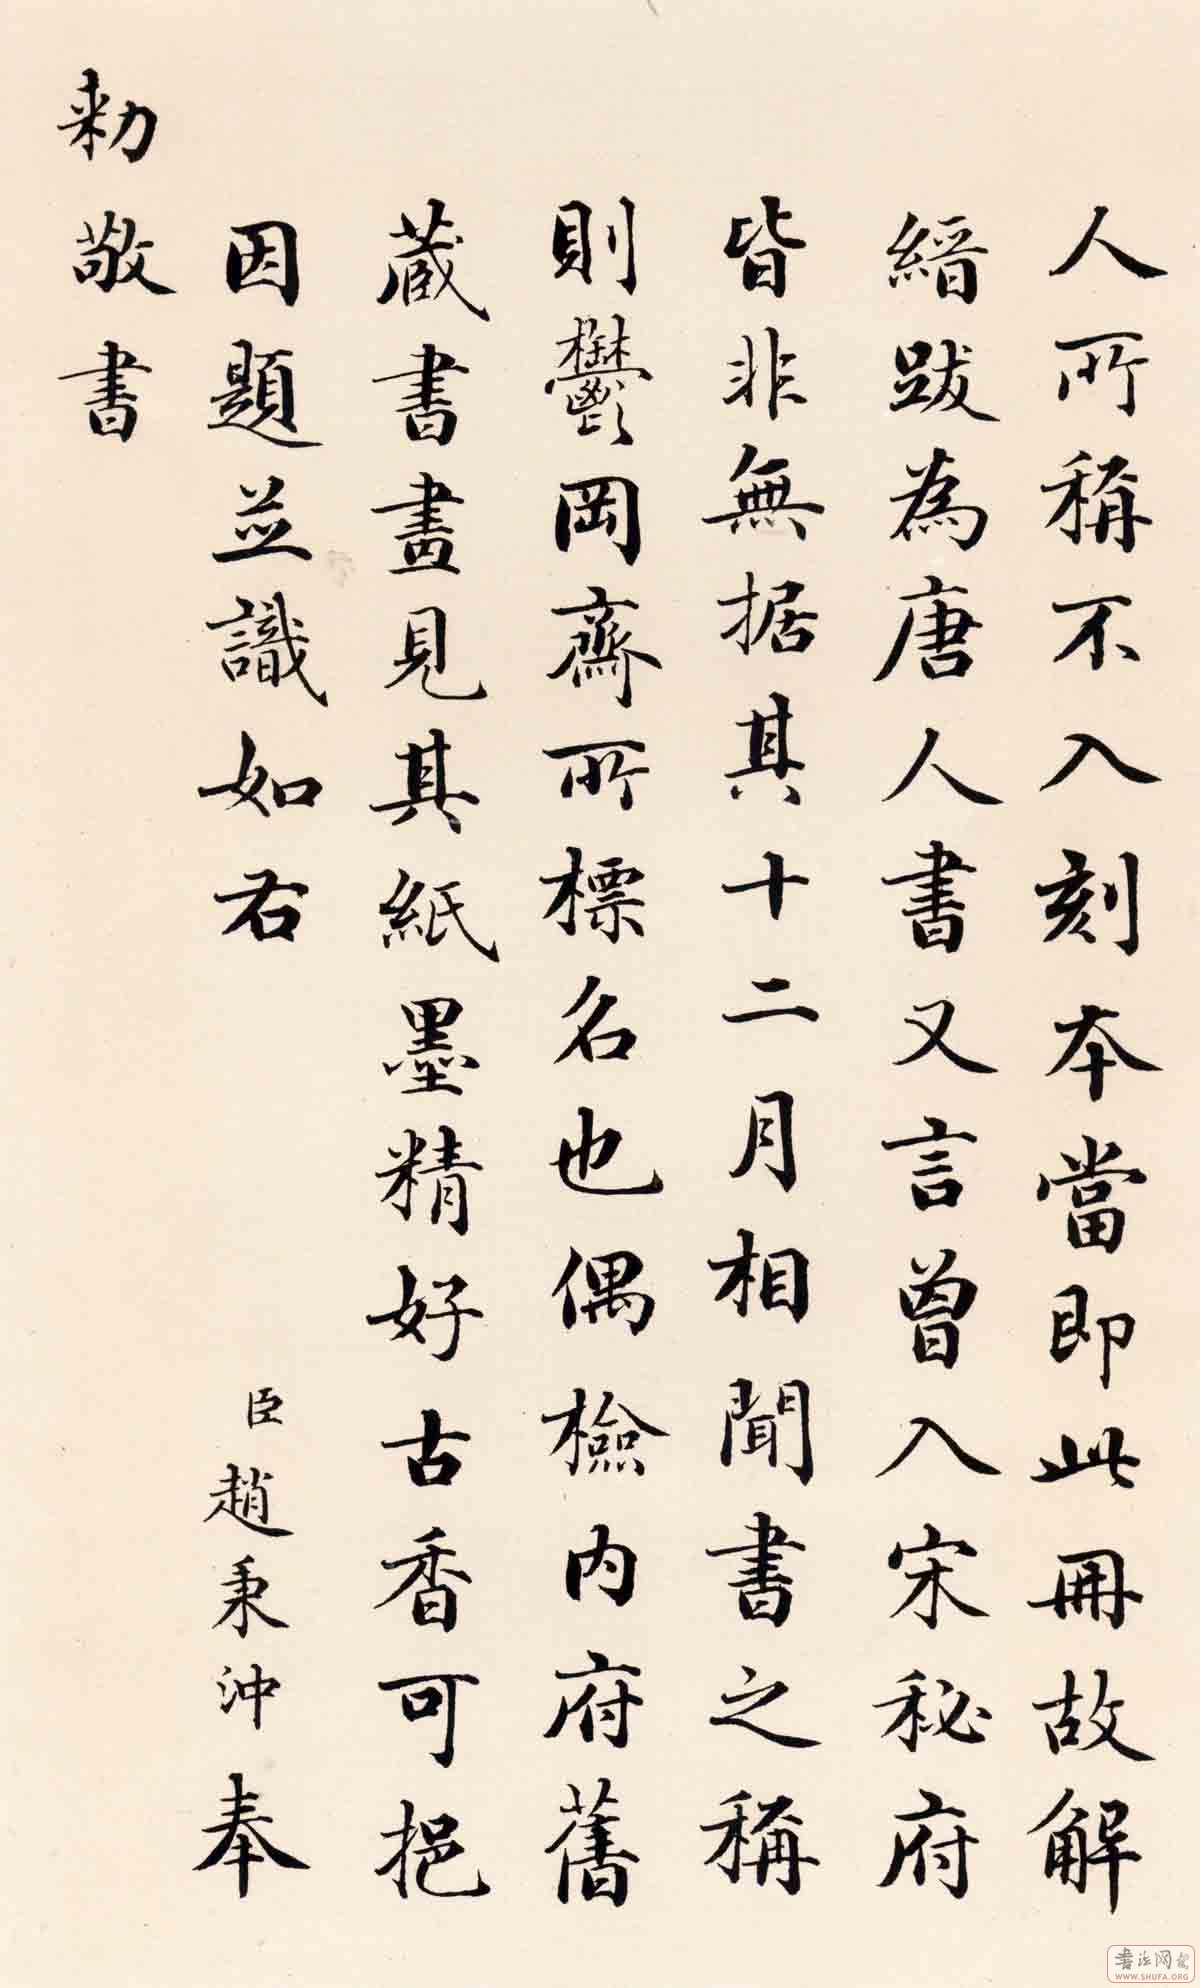 人所稱不入刻本當即此冊故解
縉跋為唐人書又言曾入宋秘府
皆非無据其十二月相聞書之稱
則鬱岡齋所標名也偶檢內府舊
蔵書畫見其紙墨精好古香可挹
因題並識如右 臣趙秉沖奉
勅敬書
書法网
WWW.SHUFA.ORG